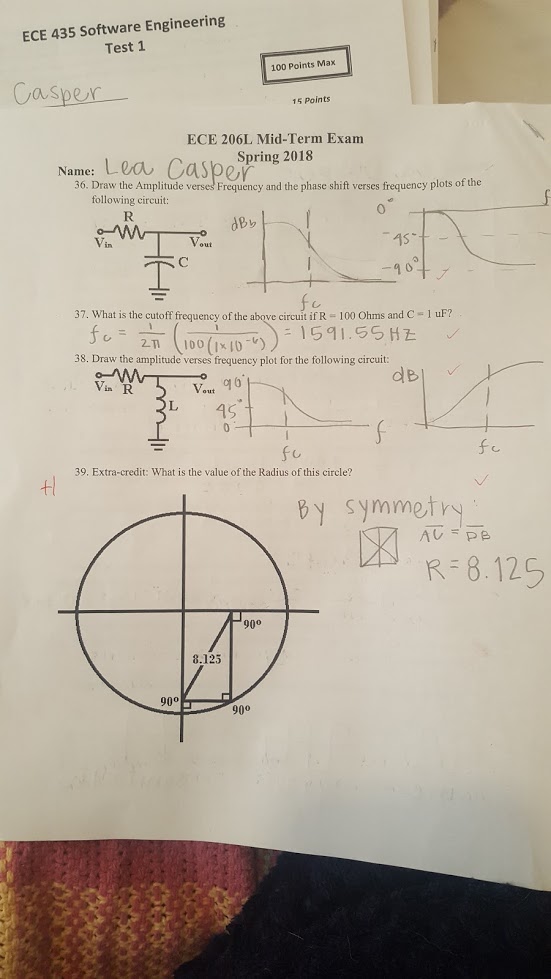 ECE 435 Software Engineering
Test 1
100 Points Max
Casper
15 Points
ECE 206L Mid-Term Exam
Spring 2018
Name: Lea Casper
36. Draw the Amplitude verses Frequency and the phase shift verses frequency plots of the
following circuit:
R
Vin
Vout
C
dB
fc
0°
-45°
-90°
f
37. What is the cutoff frequency of the above circuit if R = 100 Ohms and C = 1 uF?
fc = 1/2π (1/100(1x10^-6)) = 1591.55 HZ
38. Draw the amplitude verses frequency plot for the following circuit:
Vin R
Vout
L
90°
45°
0°
fc
f
dB
fc
39. Extra-credit: What is the value of the Radius of this circle?
+1
By symmetry
AC = DB
R = 8.125
90°
8.125
90°
90°